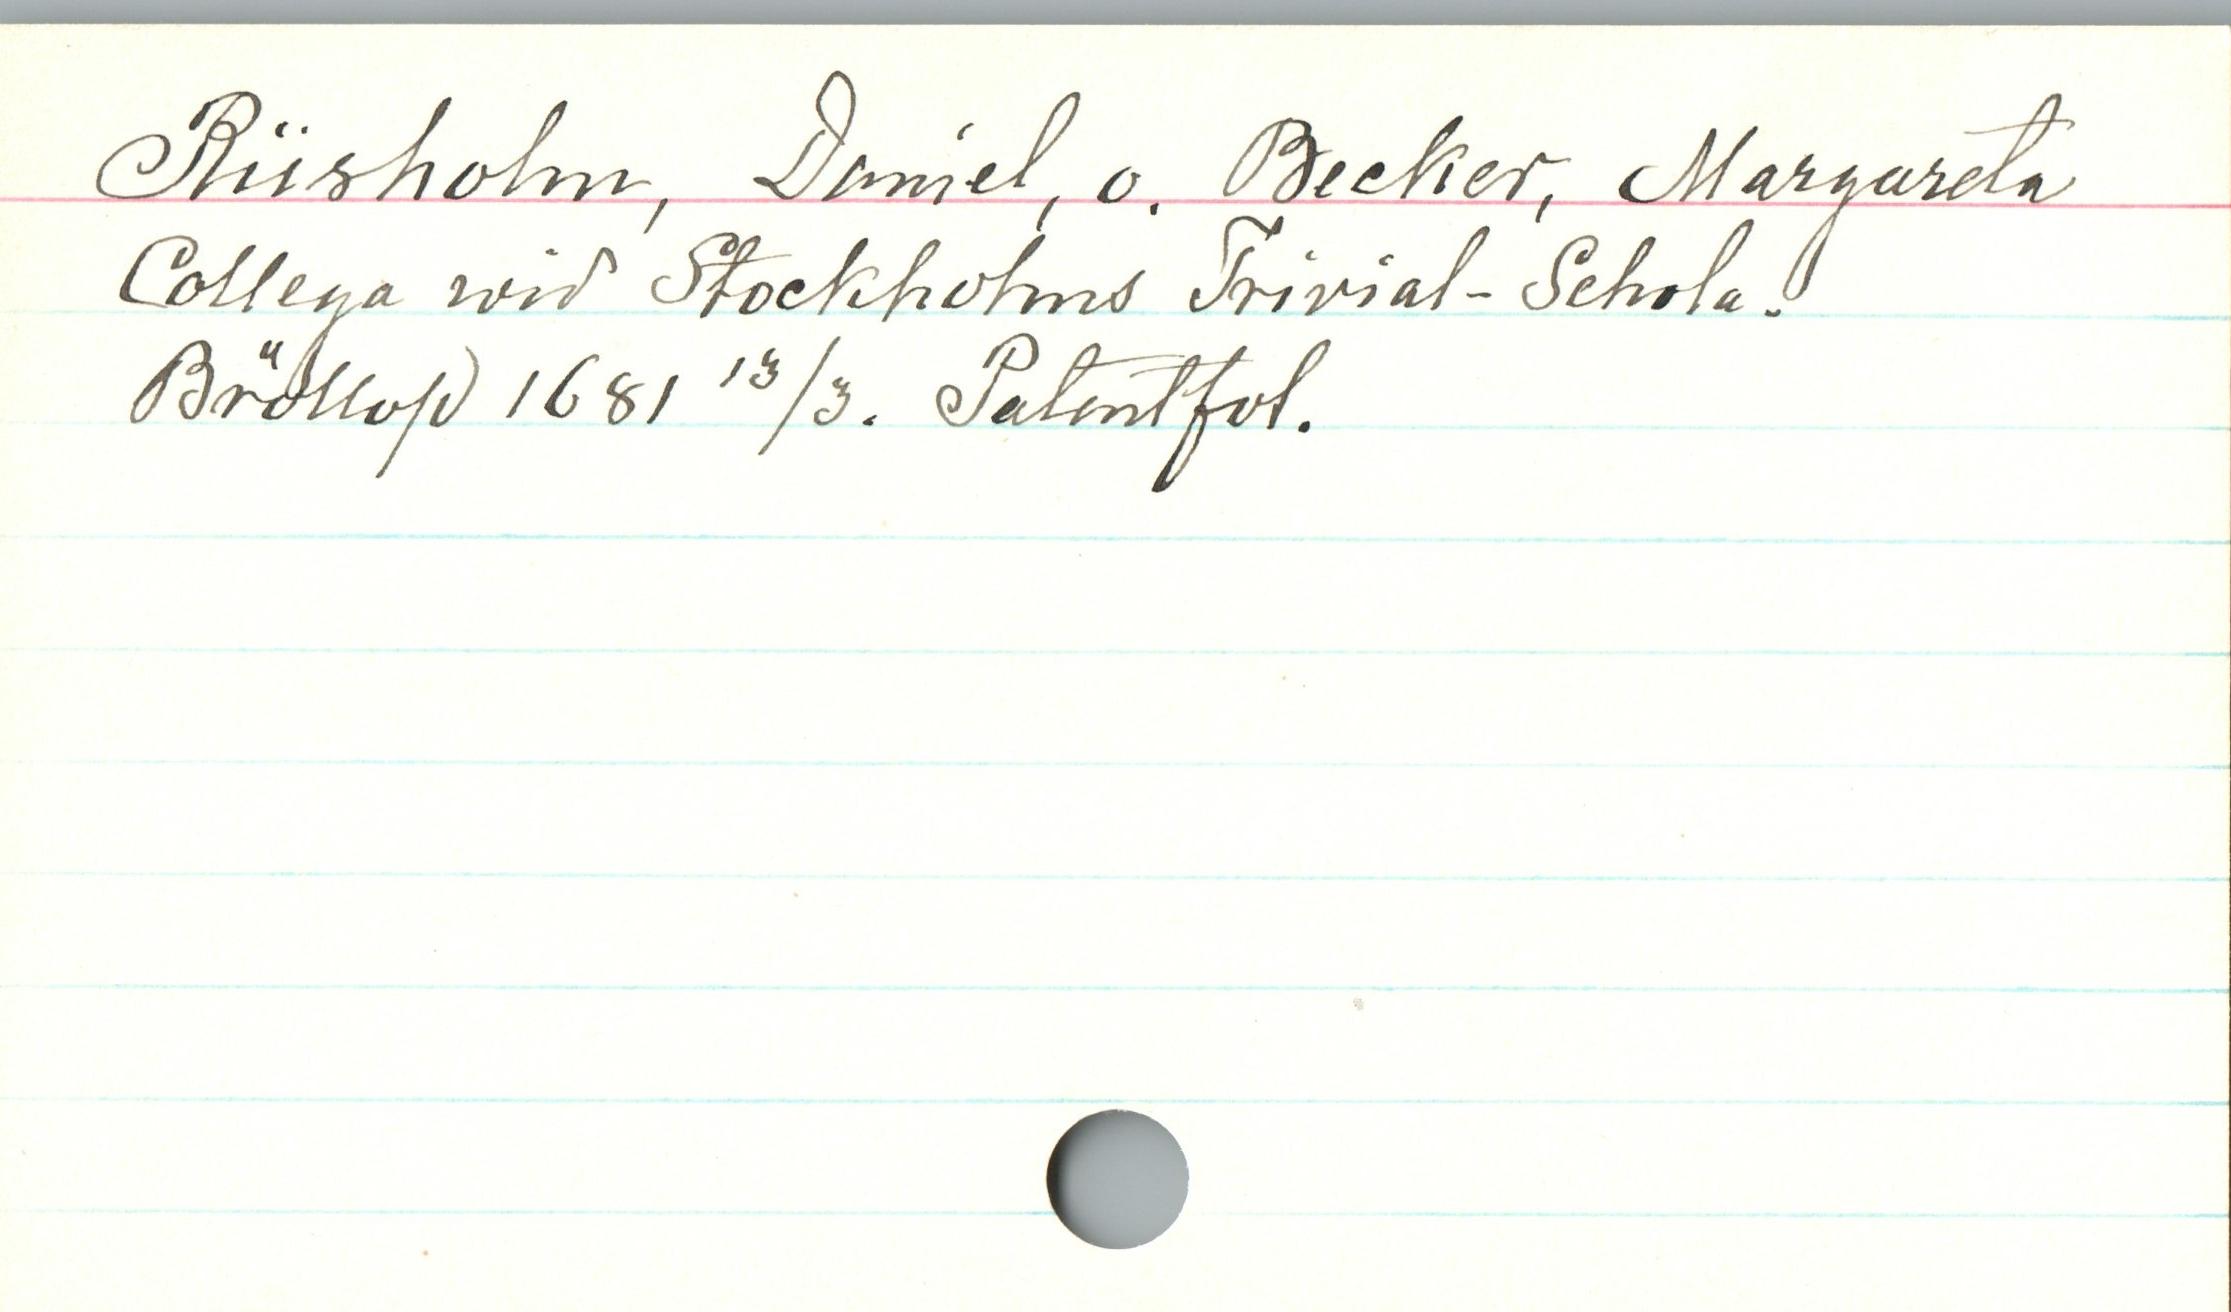 Riisholm, Daniel, o. Becker, Margareta
Collega wid Stockholms Trivial-Schola.
Bröllop 1681 13/3. Patentfol.